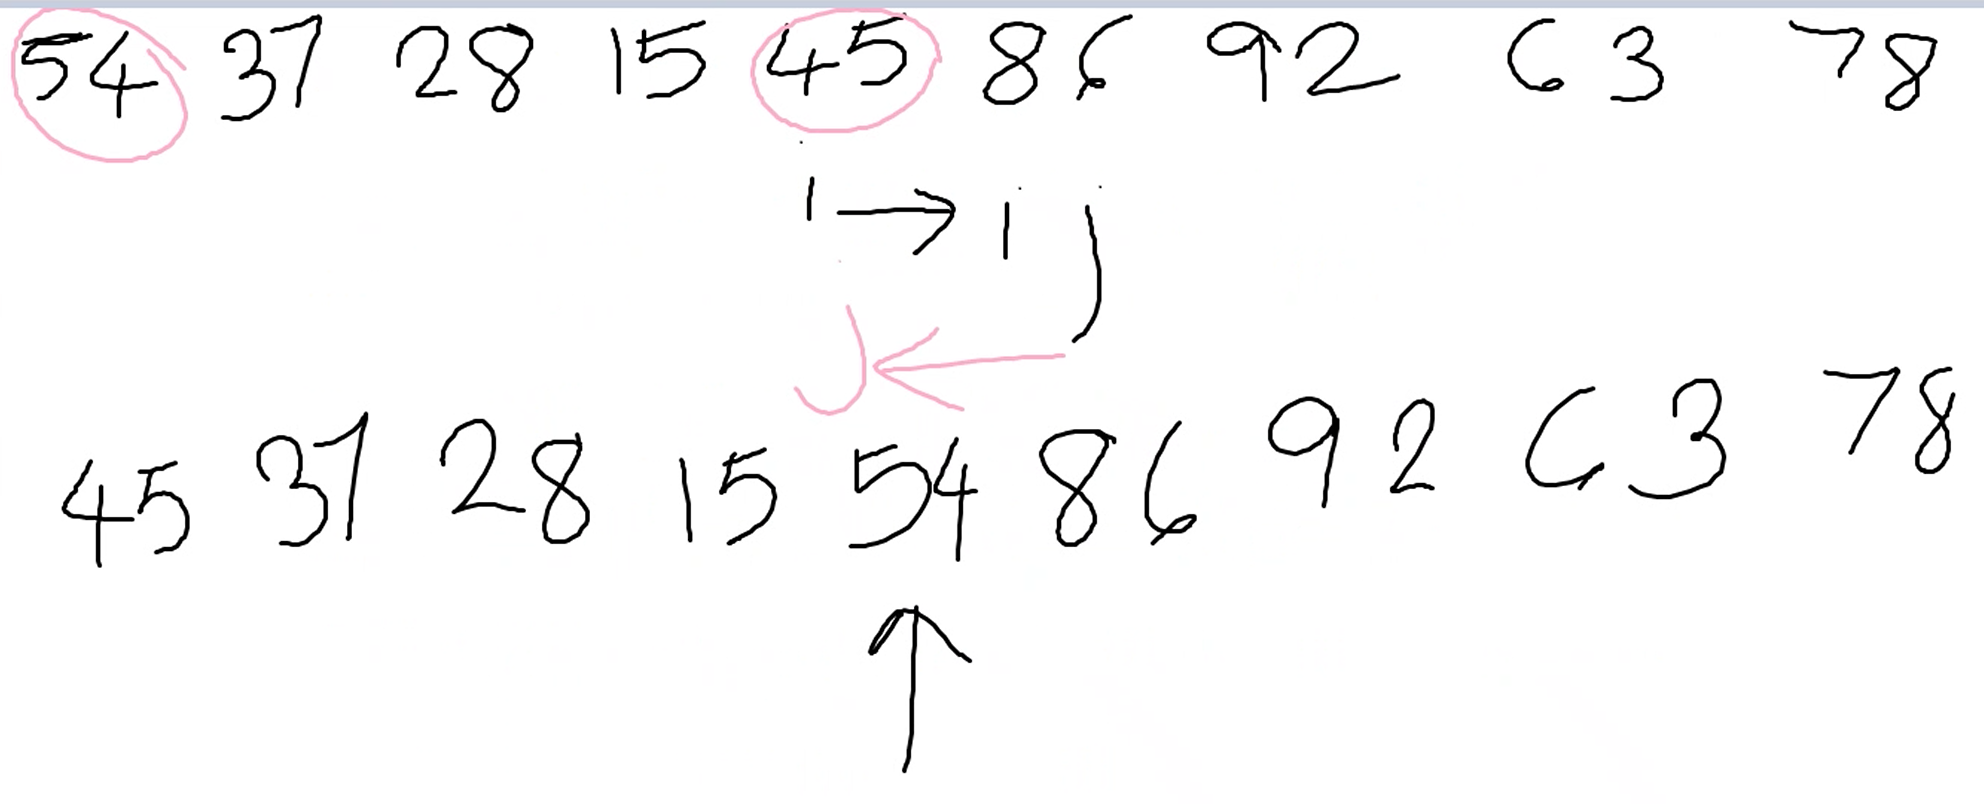 54 37 28 15 45 86 92 63 78
i → i j
J ←
45 37 28 15 54 86 92 63 78
↑